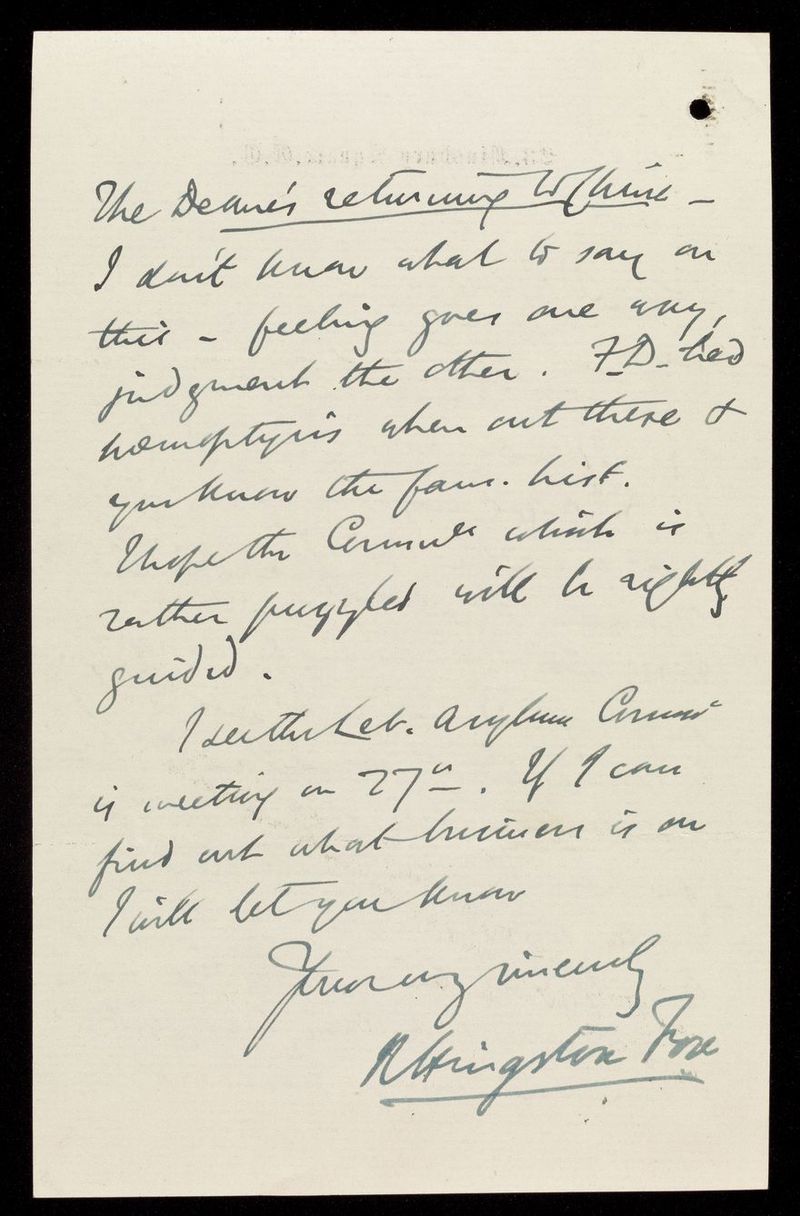 The Deane's returning to China –
I don't know what to say on
this – feeling goes one way,
judgment the other. F.D. had
hæmoptysis when out there &
you know the fam. hist.
I hope the Council which is
rather puzzled will be rightly
guided.
I see the Leb. Asylum Commee
is meeting on 27th. If I can
find out what business is on
I will let you know
Yours very sincerely
R Hingston Fox